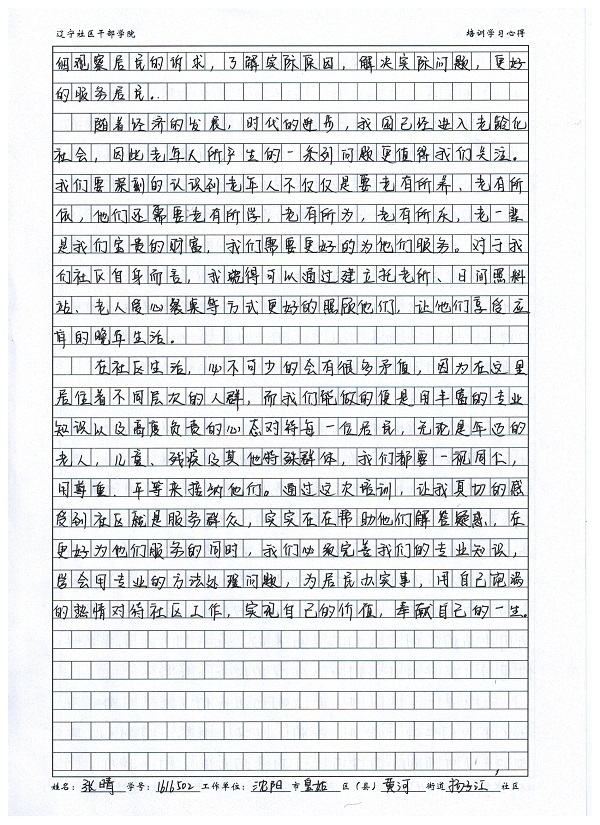 辽宁社区干部学院 培训学习心得
细观察居民的诉求，了解实际原因，解决实际问题，更好
的服务居民。
随着经济的发展，时代的进步，我国已经进入老龄化
社会，因此老年人所产生的一系列问题更值得我们关注。
我们要深刻的认识到老年人不仅仅是要老有所养、老有所
依，他们还需要老有所学，老有所为，老有所乐，老一辈
是我们宝贵的财富，我们需要更好的为他们服务。对于我
们社区自身而言，我觉得可以通过建立托老所、日间照料
站、老人爱心餐桌等方式更好的照顾他们，让他们享受应
有的晚年生活。
在社区生活，必不可少的会有很多矛盾，因为在这里
居住着不同层次的人群，而我们能做的便是用丰富的专业
知识以及高度负责的心态对待每一位居民，无论是年迈的
老人，儿童、残疾及其他特殊群体，我们都要一视同仁，
用尊重、平等来接纳他们。通过这次培训，让我真切的感
受到社区就是服务群众，实实在在帮助他们解答疑惑，在
更好为他们服务的同时，我们必须完善我们的专业知识，
学会用专业的方法处理问题，为居民办实事，用自己饱满
的热情对待社区工作，实现自己的价值，奉献自己的一生。
姓名：张晴 学号：1616502 工作单位：沈阳 市 皇姑 区（县） 黄河 街道 扬子江 社区